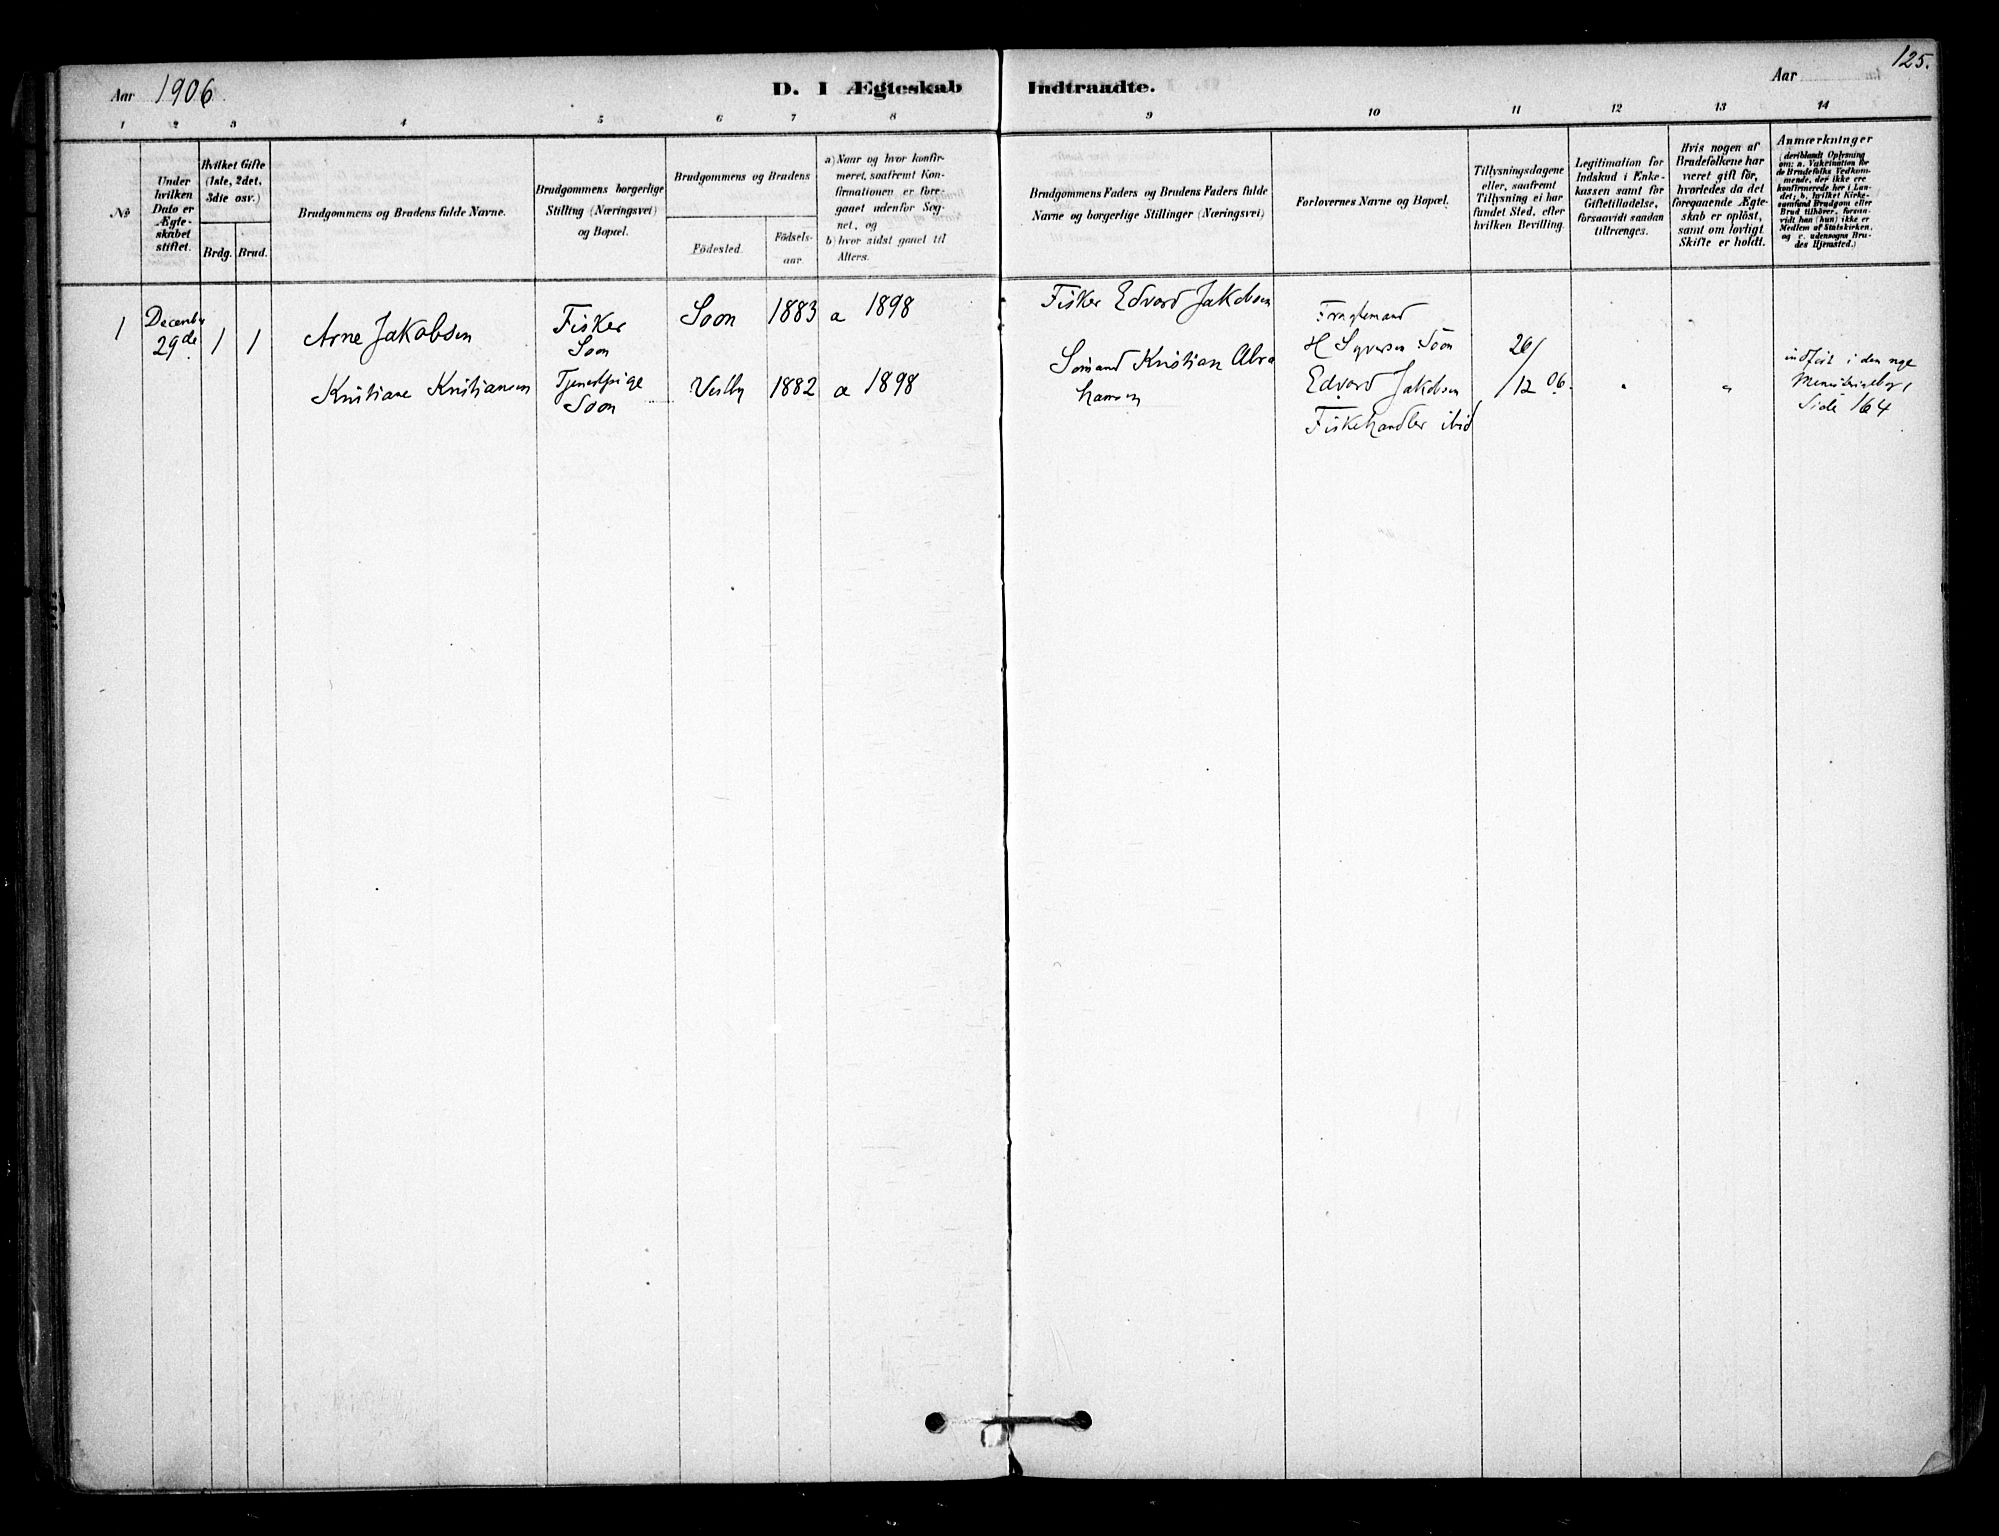 125.
Aar 1906.
D. I Ægteskab Indtraadte.
Aar
1 2 3 4 5 6 7 8 9 10 11 12 13 14
No
Under hvilken Dato er Ægte-skabet stiftet.
Hvilket Gifte (1ste, 2det, 3die osv.)
Brdg. Brud.
Brudgommens og Brudens fulde Navne.
Brudgommens borgerlige Stilling (Næringsvei) og Bopæl.
Brudgommens og Brudens
Födested.
Födsels-aar.
a) Naar og hvor konfir-meret, saafremt Kon-firmationen er fore-gaaet udenfor Sog-net, og
b) hvor sidst gaaet til Alters.
Brudgommens Faders og Brudens Faders fulde Navne og borgerlige Stillinger (Næringsvei)
Forlovernes Navne og Bopæl.
Tillysningsdagene eller, saafremt Tillysning ei har fundet Sted, efter hvilken Bevilling.
Legitimation for Indskud i Enke-kassen samt for Giftetilladelse, forsaavidt saadan tiltrænges.
Hvis nogen af Brudefolkene har været gift för, hvorledes da det foregaaende Ægte-skab er oplöst, samt om lovligt Skifte er holdt.
Anmærkninger
(deriblandt Oplysning om: a. Vakcination for de Brudefolks Vedkom-mende, der ikke ere konfirmerede her i Lan-det; b. hvilket Kirke-samfund Brudgom eller Brud tilhører, forsaa-vidt han (hun) ikke er Medlem af Statskirken, og c. udensogns Bru-des Hjemsted.)
1 Decembr 29de 1 1
Arne Jakobsen
Fisker
Soon
Soon 1883 a 1898
Fisker Edvard Jakobsen
Fragtemand
H Syversen Soon
Kristiane Kristiansen
Tjenestpige
Soon
Vestby 1882 a 1898
Sömand Kristian Abra
hamsen
Edvard Jakobsen
Fiskehandler ibid
26/
/12 06.
" "
indført i den nye
Ministerialbog,
Side 164